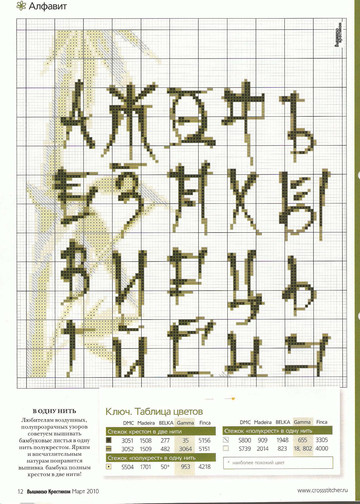 Алфавит
А Ж О Ф Ъ
З
В И Е Ц Ь
Г И
В ОДНУ НИТЬ
Любителям воздушных,
полупрозрачных узоров
советуем вышивать
бамбуковые листья в одну
нить полукрестом. Ярким
и впечатляющим
натурам понравится
вышивка бамбука полным
крестом в две нити!
Ключ. Таблица цветов
DMC Madeira BELKA Gamma Finca
Стежок «крестом в две нити»
3051 1508 277 35 5156
3052 1509 482 3064 5151
Стежок «полукрест» в одну нить
5504 1701 50* 953 4218
DMC Madeira BELKA Gamma Finca
Стежок «полукрест» в одну нить
5800 909 1948 655 3305
5739 2014 823 18, 802 4000
* наиболее похожий цвет
12 Вышиваю Крестиком Март 2010
www.crossstitcher.ru